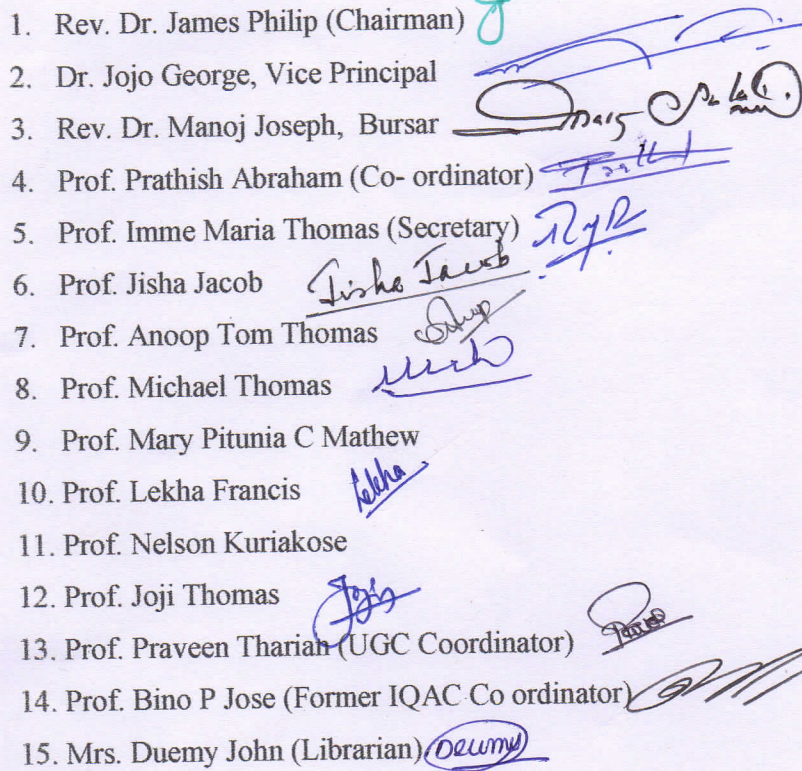 1. Rev. Dr. James Philip (Chairman)
2. Dr. Jojo George, Vice Principal
3. Rev. Dr. Manoj Joseph, Bursar
4. Prof. Prathish Abraham (Co- ordinator)
5. Prof. Imme Maria Thomas (Secretary)
6. Prof. Jisha Jacob Jisha Jacob
7. Prof. Anoop Tom Thomas
8. Prof. Michael Thomas
9. Prof. Mary Pitunia C Mathew
10. Prof. Lekha Francis Lekha
11. Prof. Nelson Kuriakose
12. Prof. Joji Thomas
13. Prof. Praveen Tharian (UGC Coordinator)
14. Prof. Bino P Jose (Former IQAC Co ordinator)
15. Mrs. Duemy John (Librarian)